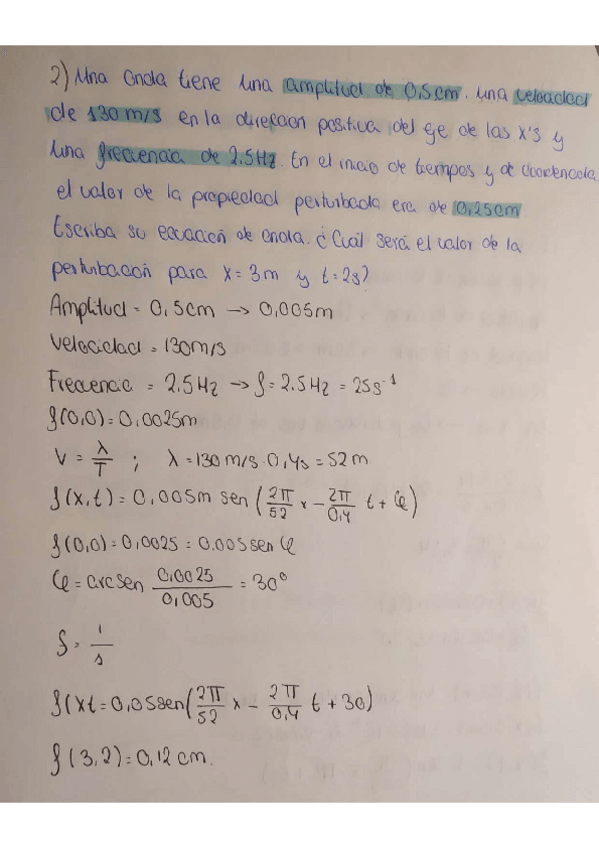 2) Una Onda tiene una amplitud de 0,5cm. una velocidad
de 130m/s en la direccion positiva del eje de las x's y
una frecuencia de 2.5Hz. En el inicio de tiempos y de coordenada
el valor de la propiedad perturbada era de 0,25cm
Escriba su ecuación de onda. ¿Cuál será el valor de la
perturbación para x = 3m y t = 2s?
Amplitud = 0,5cm → 0,005m
Velocidad = 130m/s
Frecuencia = 2.5Hz → f = 2.5Hz = 25s⁻¹
f(0,0) = 0,0025m
V = λ/T ; λ = 130m/s · 0,4s = 52m
f(x,t) = 0,005m sen (2π/52 x - 2π/0,4 t + φ)
f(0,0) = 0,0025 = 0,005 sen φ
φ = arcsen 0,0025/0,005 = 30º
f = 1/s
f(xt = 0,05sen(2π/52 x - 2π/0,4 t + 30)
f(3,2) = 0,12cm.